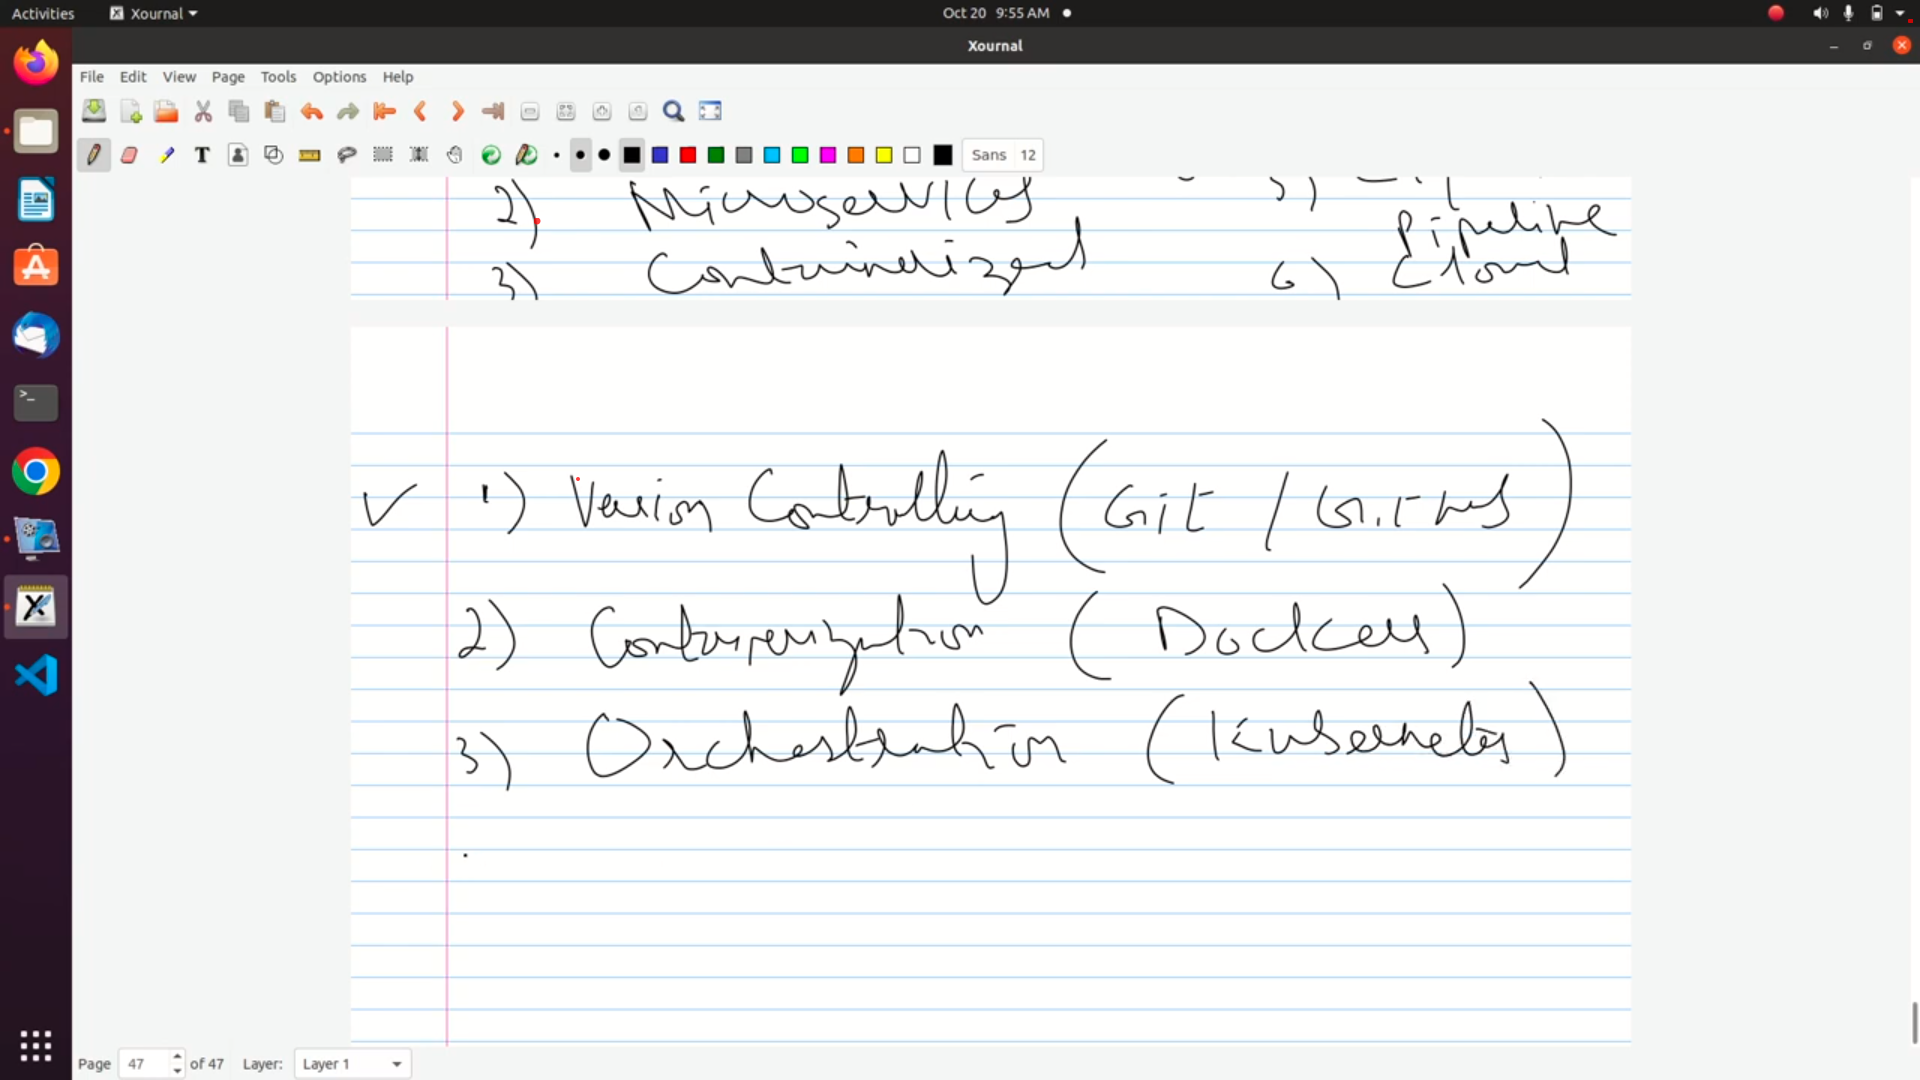 Activities Xournal Oct 20 9:55 AM
Xournal
File Edit View Page Tools Options Help
T Sans 12
2) Microservices
Pipeline
3) Containerized 6) Cloud
1) Version Controlling (Git / GitHub)
2) Containerization (Docker)
3) Orchestration (Kubernetes)
Page 47 of 47 Layer: Layer 1